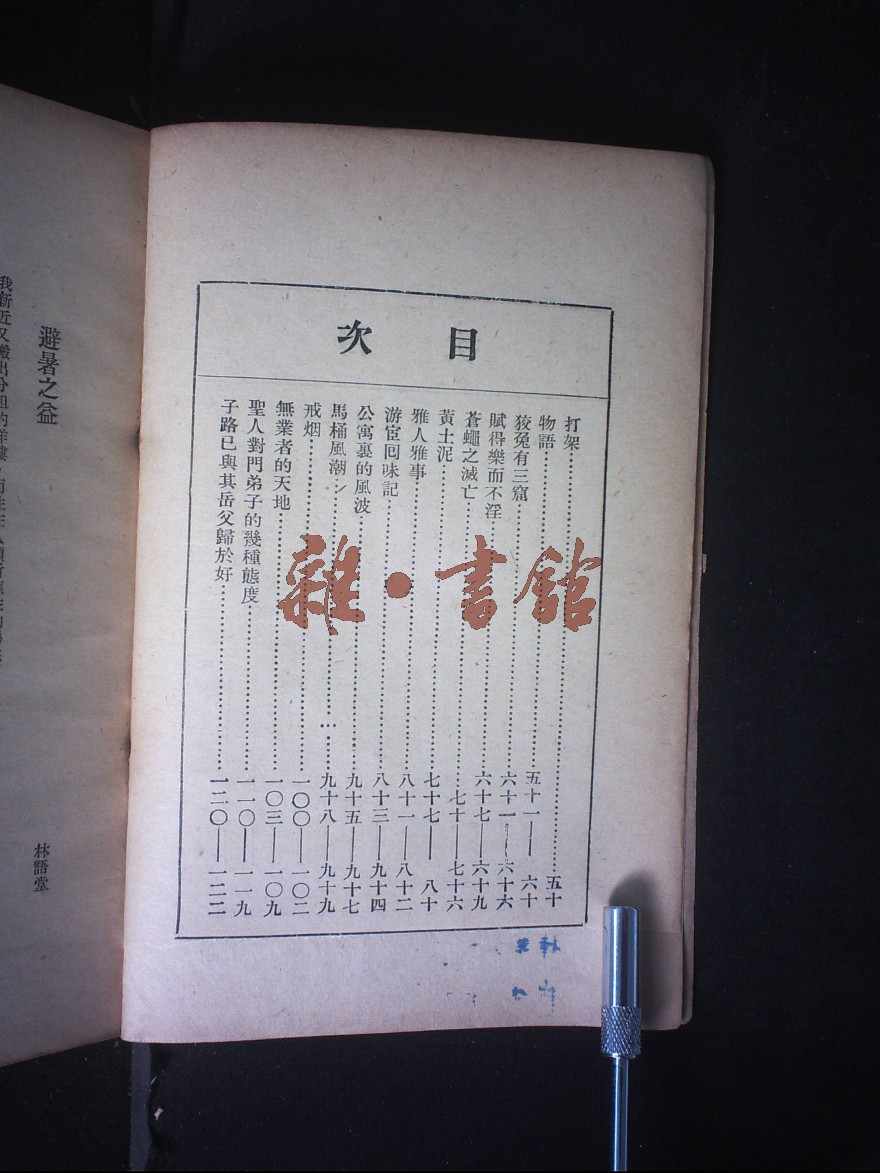 目次
打架……五十
物語……五十一——六十
狡兔有三窟……六十一——六十六
賦得樂而不淫……六十七——六十九
蒼蠅之滅亡……七十——七十六
黃土泥……七十七——八十
雅人雅事……八十一——八十二
游宦囘味記……八十三——九十四
公寓裏的風波……九十五——九十七
馬桶風潮……九十八——九十九
戒烟……一〇〇——一〇二
無業者的天地……一〇三——一〇九
聖人對門弟子的幾種態度……一一〇——一一九
子路已與其岳父歸於好……一二〇——一二二
雜·書館
避暑之益
林語堂
我新近又搬出分租的洋樓